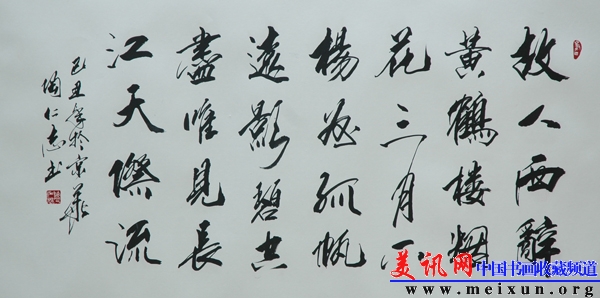 故人西辭
黃鶴樓烟
花三月下
楊州孤帆
遠影碧空
盡唯見長
江天際流
己丑年於京華
陶仁志书
美讯网 中国书画收藏频道
www.meixun.org